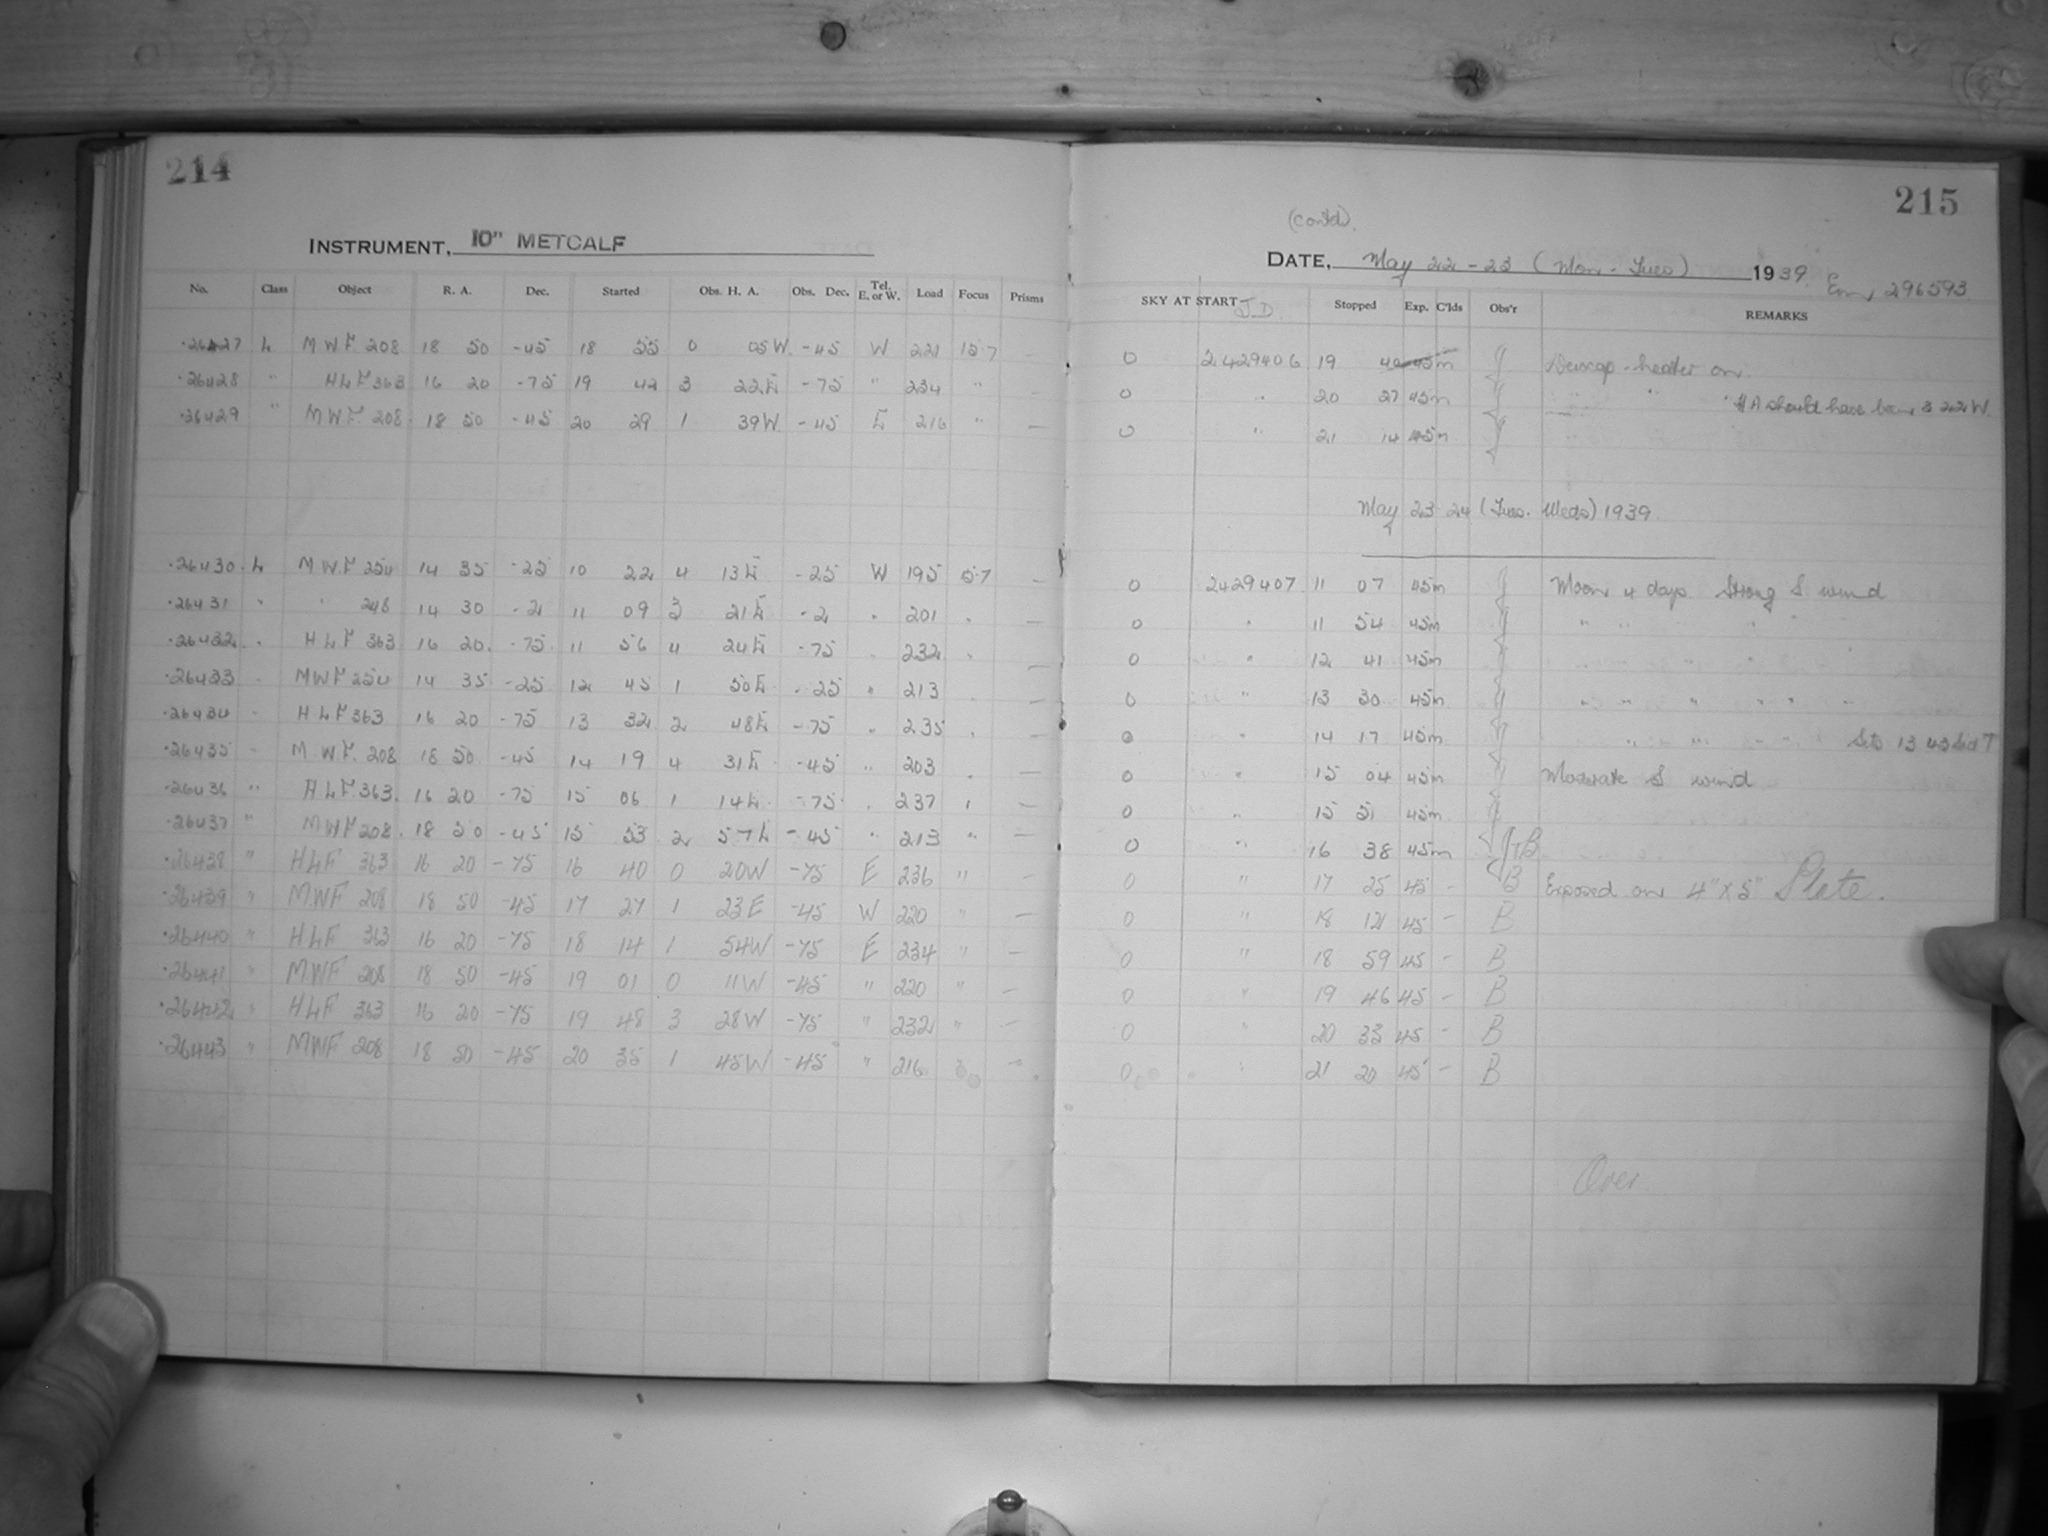 214
INSTRUMENT, 10" METCALF
No. Class Object R. A. Dec. Started Obs. H. A. Obs. Dec. Tel. E. or W. Load Focus Prisms
26427 L MWF 208 18 50 -45 18 55 0 05W -45 W 221 15.7 —
26428 " HLF 363 16 20 -75 19 42 3 22E -75 " 234 " —
26429 " MWF 208 18 50 -45 20 29 1 39W -45 E 216 " —
26430 L MWF 254 14 35 -25 10 22 4 13E -25 W 195 15.7 —
26431 " " 248 14 30 -2 11 09 3 21E -2 " 201 "
26432 " HLF 363 16 20 -75 11 56 4 24E -75 " 232 " —
26433 " MWF 254 14 35 -25 12 45 1 50E -25 " 213 " —
26434 " HLF 363 16 20 -75 13 32 2 48E -75 " 235 " —
26435 " MWF 208 18 50 -45 14 19 4 31E -45 " 203 " —
26436 " HLF 363 16 20 -75 15 06 1 14E -75 " 237 " —
26437 " MWF 208 18 50 -45 15 53 2 57E -45 " 213 " —
26438 " HLF 363 16 20 -75 16 40 0 20W -75 E 236 " —
26439 " MWF 208 18 50 -45 17 27 1 23E -45 W 220 " —
26440 " HLF 363 16 20 -75 18 14 1 54W -75 E 234 " —
26441 " MWF 208 18 50 -45 19 01 0 11W -45 " 220 " —
26442 " HLF 363 16 20 -75 19 48 3 28W -75 " 232 " —
26443 " MWF 208 18 50 -45 20 35 1 45W -45 " 216 —
215
(contd).
DATE, May 22-23 (Mon-Tues) 1939. 296593
SKY AT START J.D. Stopped Exp. C'lds Obs'r REMARKS
0 2429406 19 40 45m J Dewcap-heater on.
0 " 20 27 45m J " " HA should have been 3 22W.
0 " 21 14 45m J
May 23 24 (Tues. Weds) 1939.
0 2429407 11 07 45m J Moon 4 days. Strong S wind
0 " 11 54 45m J " " "
0 " 12 41 45m J
0 " 13 30 45m J " " " "
0 " 14 17 45m J Sets 13 43 Sid T
0 " 15 04 45m J Moderate S wind
0 " 15 51 45m J
0 " 16 38 45m J+B
0 " 17 25 45 — B Exposed on 4" x 5" Plate.
0 " 18 12 45 — B
0 " 18 59 45 — B
0 " 19 46 45 — B
0 " 20 33 45 — B
0 " 21 20 45 — B
Over.